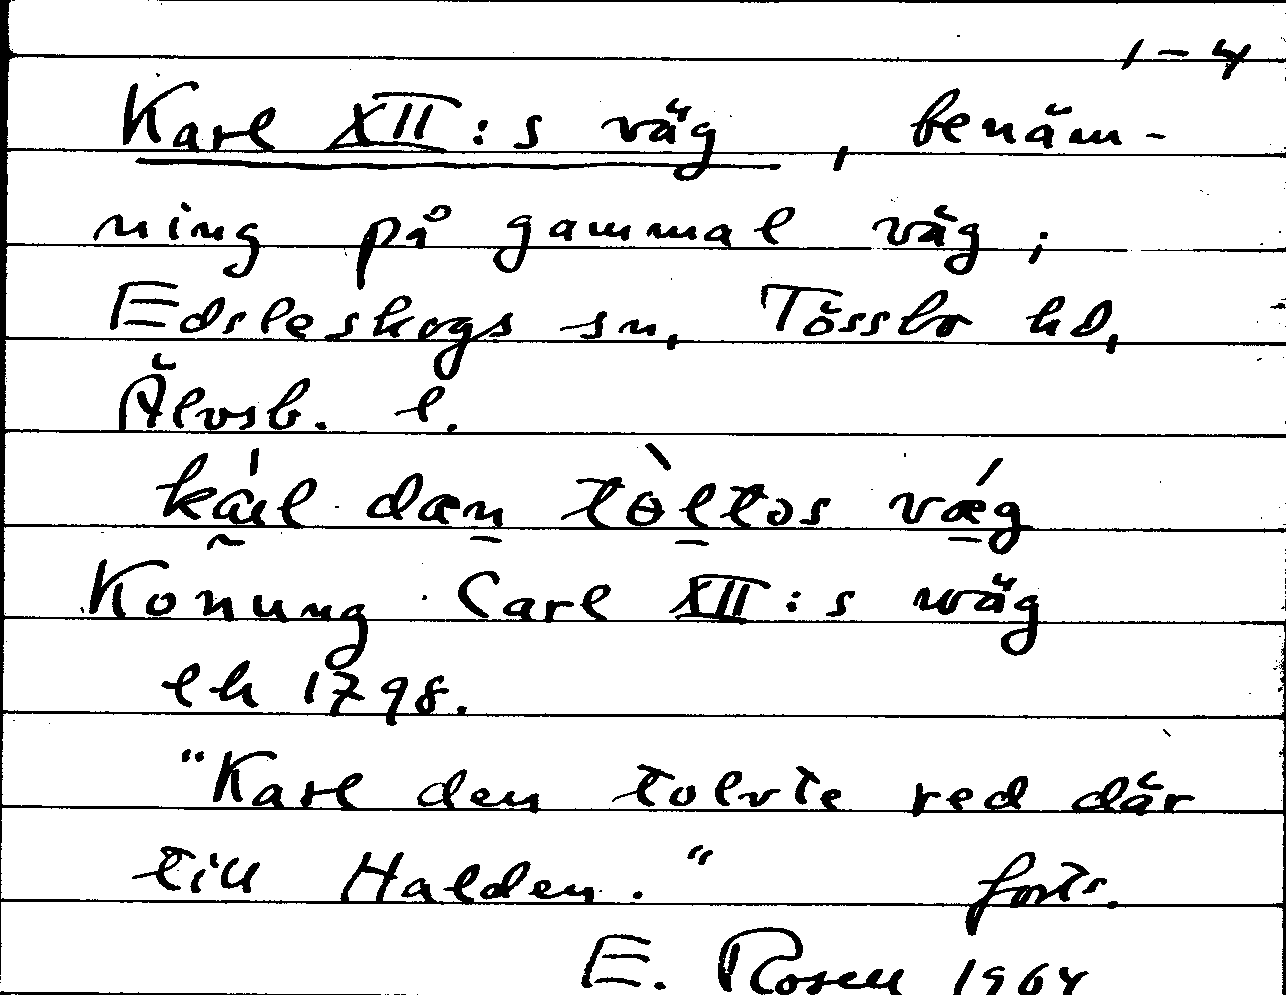 1–4
Karl XII:s väg, benäm-
ning på gammal väg;
Edsleskogs sn, Tössbo hd,
Älvsb. l.
dæn
Konung Carl XII:s wäg
ek 1798.
"Karl den tolvte red där
till Halden." forts.
E. Rosen 1964